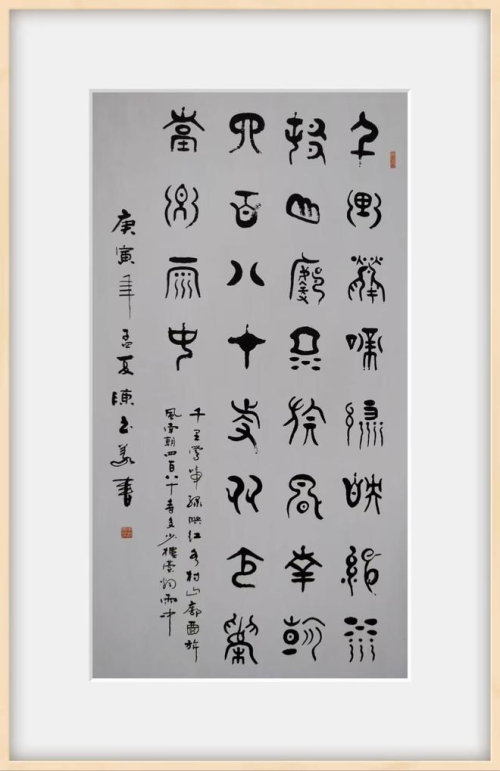 千里鶯啼綠映紅水
村山郭酒旗風南朝
四百八十寺多少樓
臺煙雨中
千里鶯啼綠映紅水村山郭酒旗
風南朝四百八十寺多少樓臺煙雨中
庚寅年孟夏陳玉書